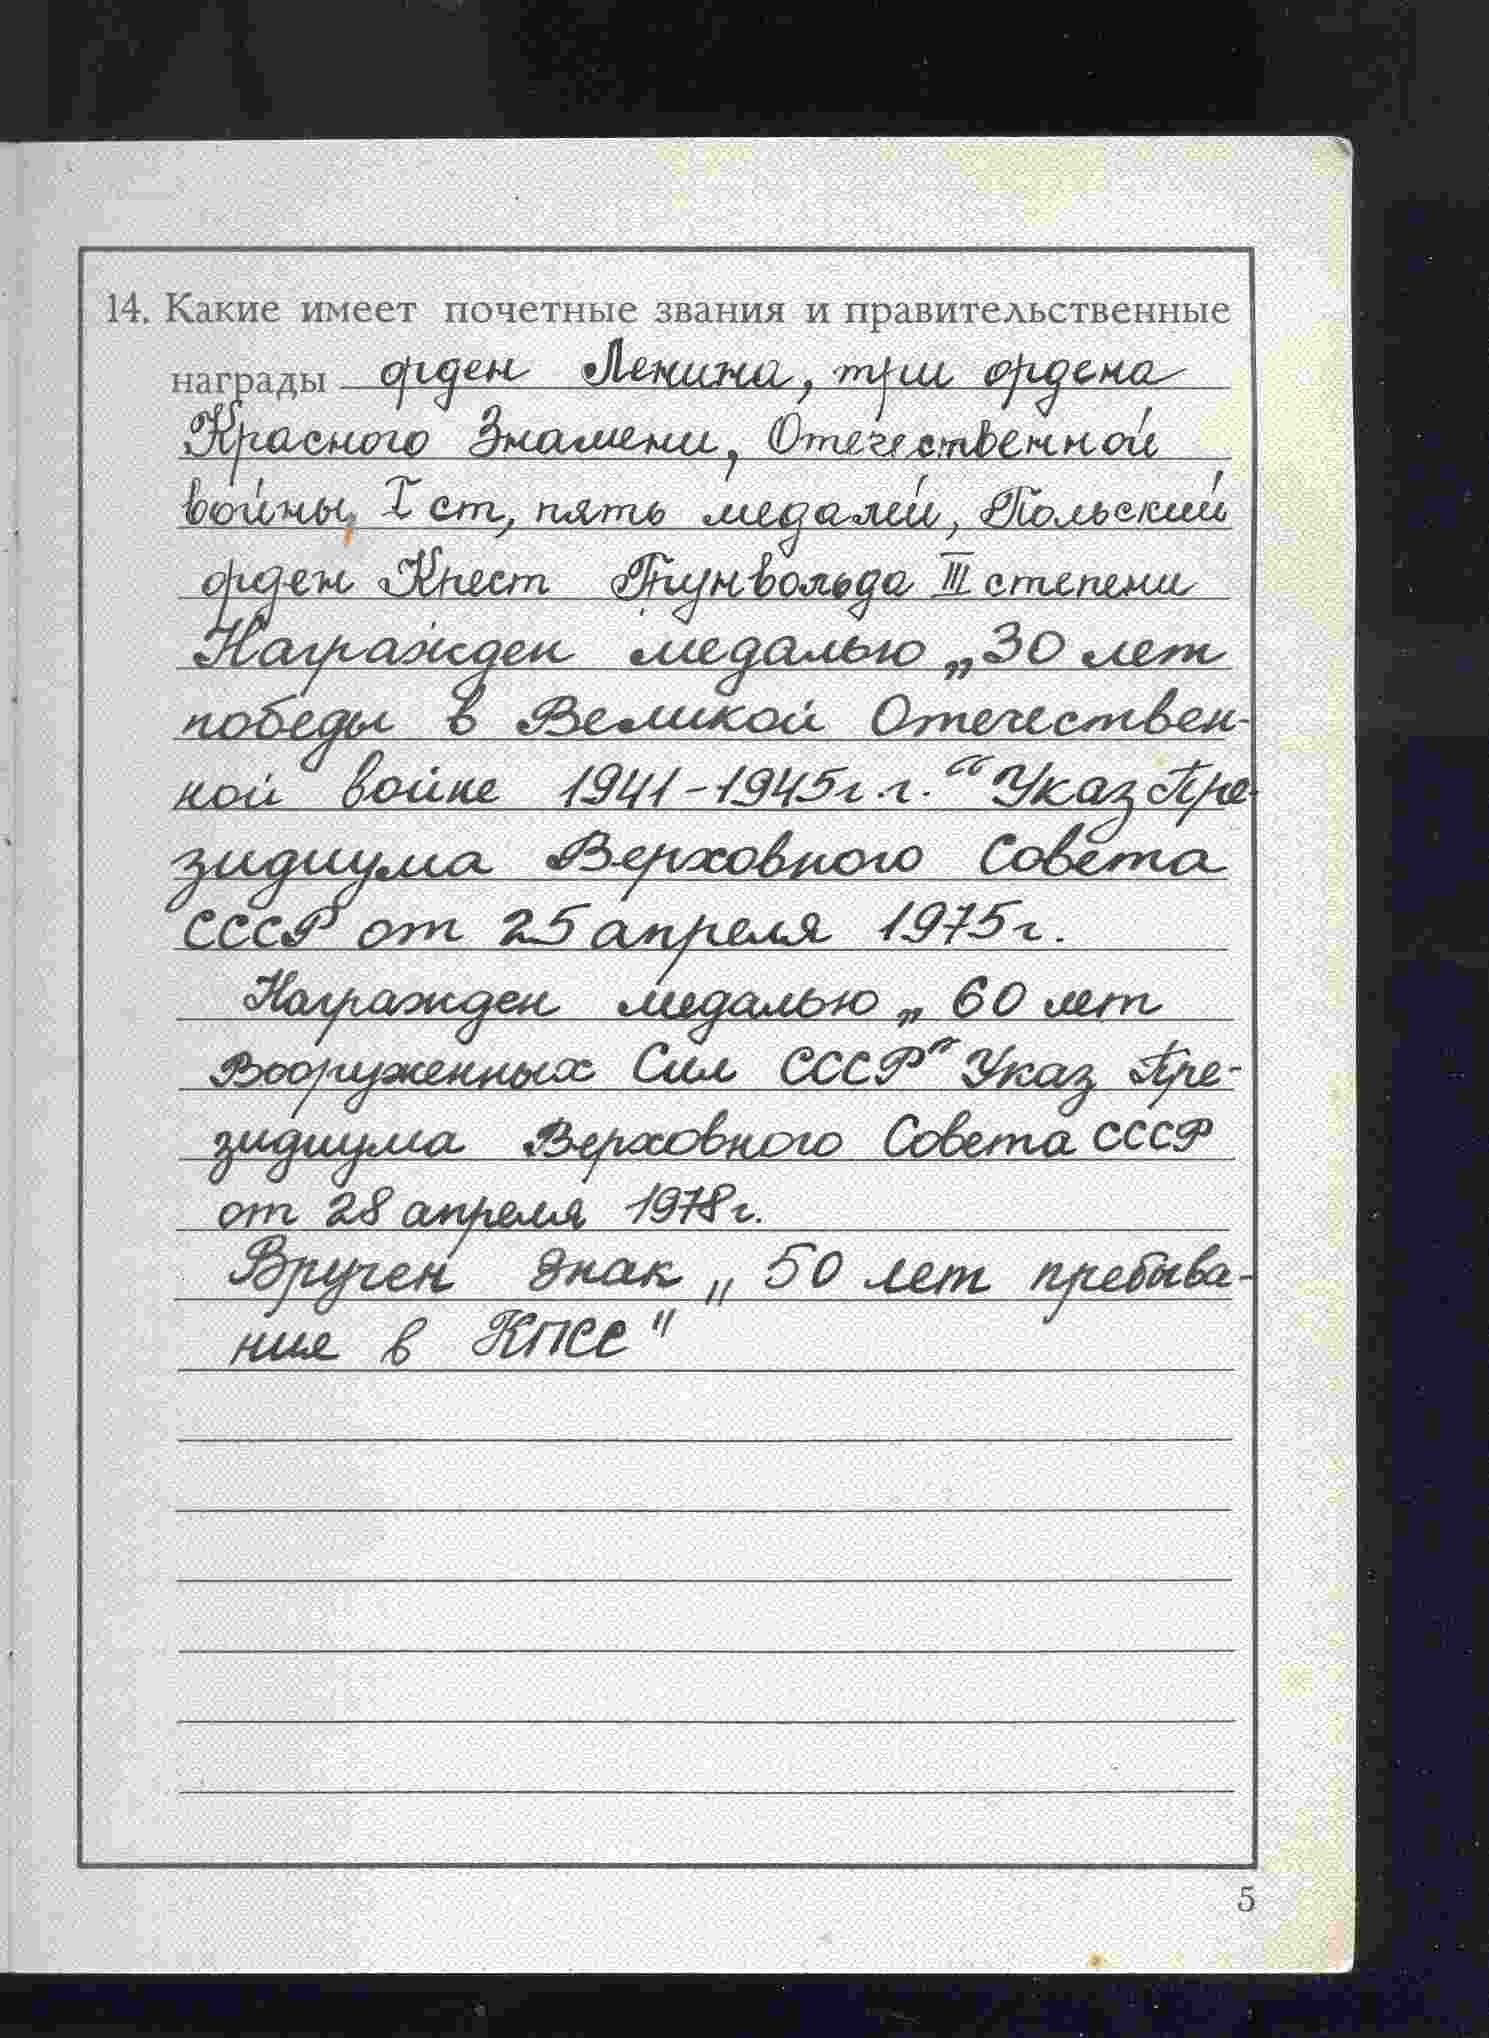 14. Какие имеет почетные звания и правительственные
награды орден Ленина, три ордена
Красного Знамени, Отечественной
войны, I ст, пять медалей, Польский
орден Крест Грунвольда III степени
Награжден медалью „30 лет
победы в Великой Отечествен-
ной войне 1941-1945г.г.“ Указ Пре-
зидиума Верховного Совета
СССР от 25 апреля 1975г.
Награжден медалью „60 лет
Вооруженных Сил СССР” Указ Пре-
зидиума Верховного Совета СССР
от 28 апреля 1978г.
Вручен знак „50 лет пребыва-
ния в КПСС"
5